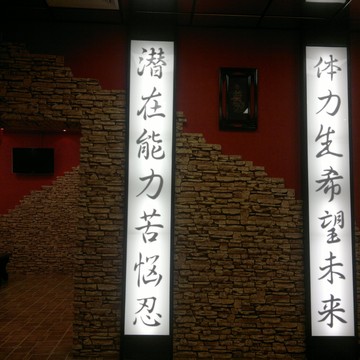 潜在能力苦悩忍
体力生希望未来